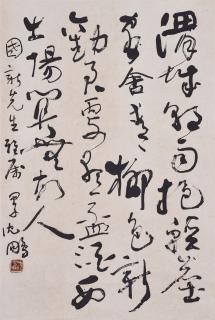 渭城朝雨浥輕塵
客舍青青柳色新
勸君更盡一盃酒西
出陽關無故人
國新先生雅屬 沈鵬